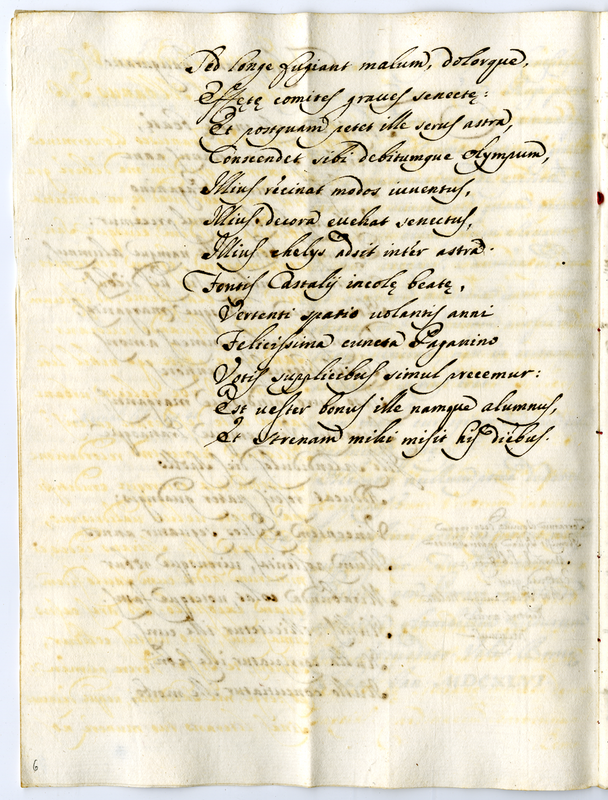 Sed longe fugiant malum, dolorque,
Effętę comites graues senectę:
Et postquam petet ille serus astra,
Conscendet sibi debitumque Olympum,
Illius recinat modos iuuentus,
Illius decora euehat senectus,
Illius chelys adsit inter astra.
Fontis Castalij incolę beatę,
Vertenti spatio uolantis anni
Felicissima cuncta Paganino
Votis supplicibus simul precemur:
Est uester bonus ille namque alumnus,
Et strenam mihi misit his diebus.
6